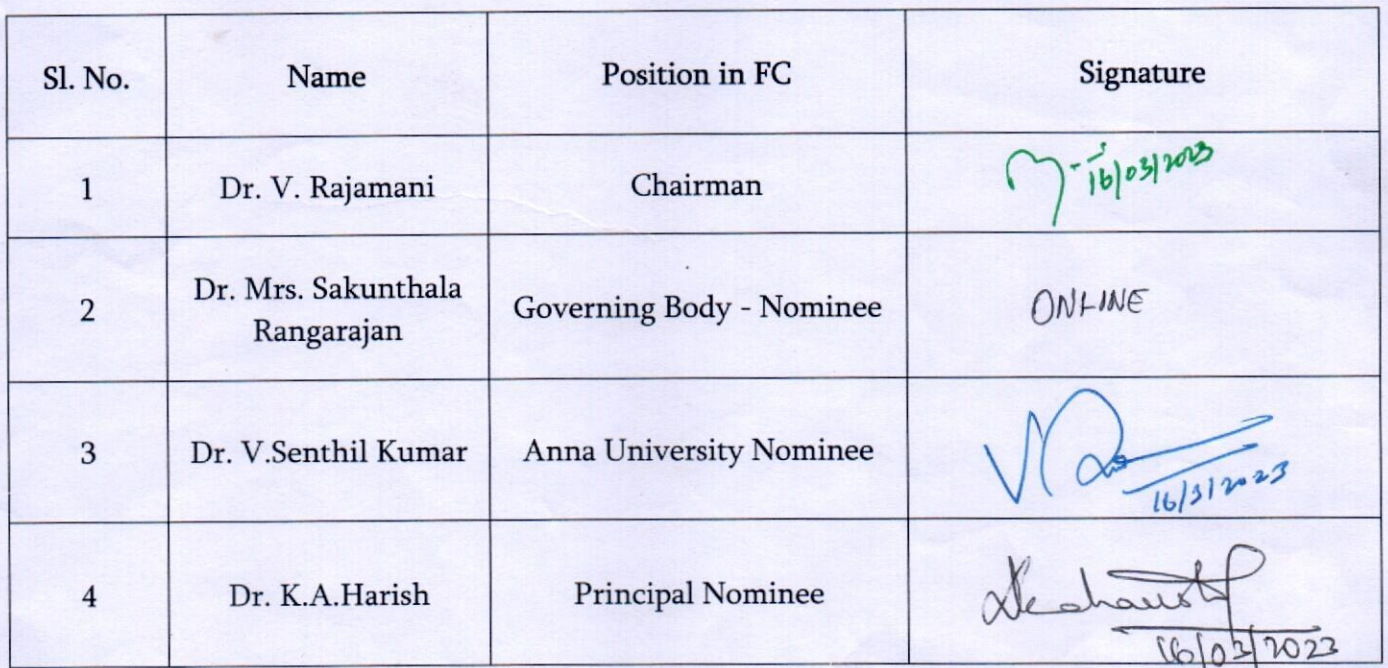 Sl. No. Name Position in FC Signature
1 Dr. V. Rajamani Chairman 16/03/2023
2 Dr. Mrs. Sakunthala Rangarajan Governing Body - Nominee ONLINE
3 Dr. V.Senthil Kumar Anna University Nominee 16/3/2023
4 Dr. K.A.Harish Principal Nominee 16/03/2023